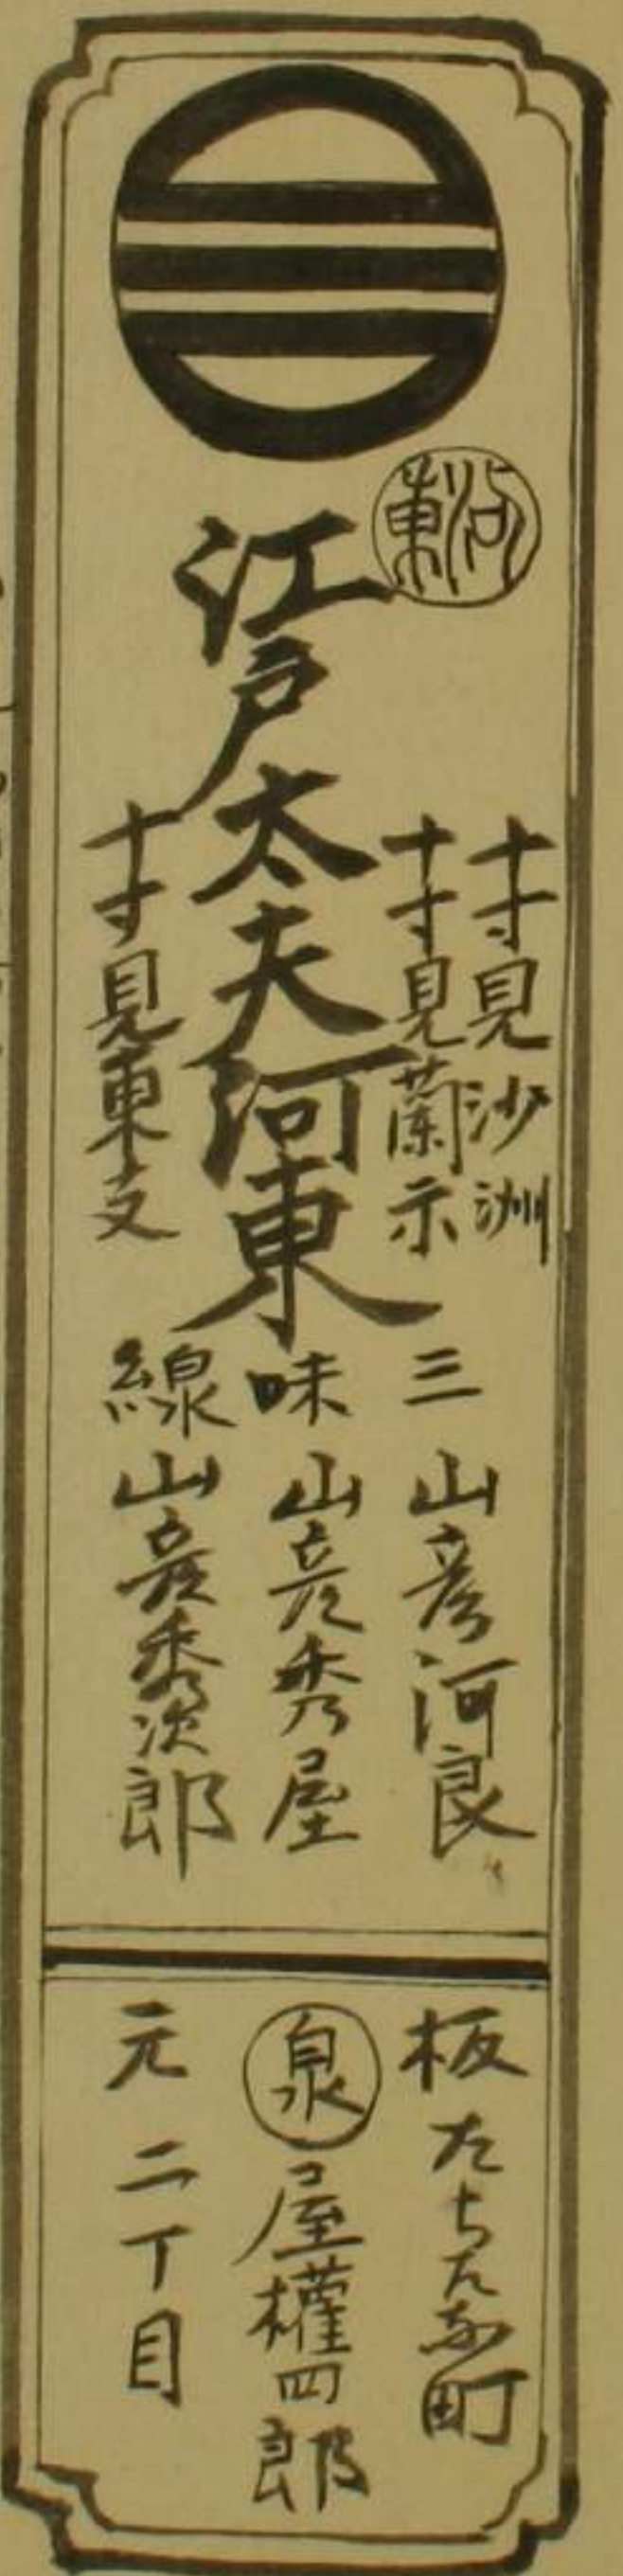 河東
江戸太夫河東
十寸見沙洲
十寸見蘭示
十寸見東支
三味線
山彦河良
山彦秀屋
山彦秀次郎
板元
たちはな町
二丁目
泉屋權四郎